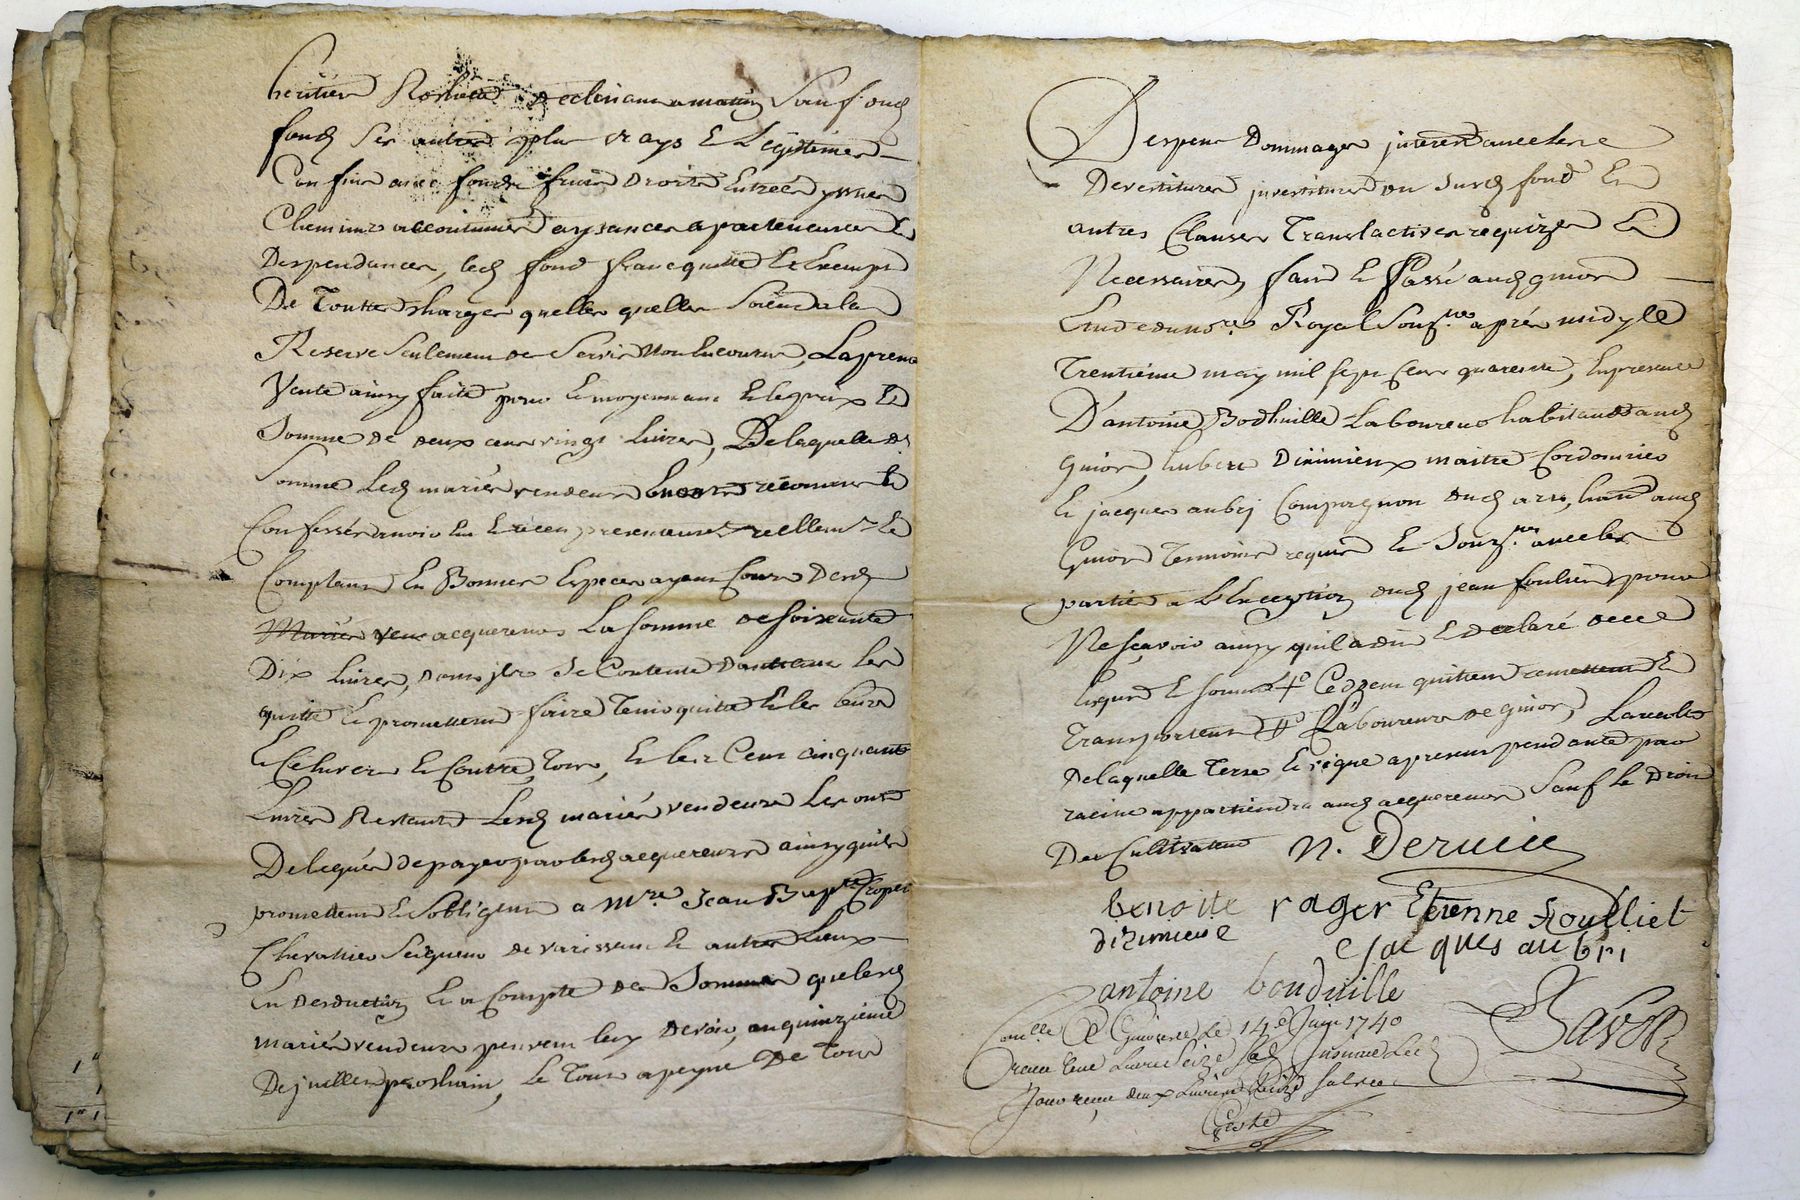 heritiers
fond ses autres plus vrays et Legitimes
Confins avec fonds fruits Droits Entrées yssues
Chemins accoutumés aysances apartenances Et
Despendances, led fond francquitte Et Exempt
De Touttes charges quelles quelles Soient ala
Reserve Seulement de Servis Non Encourus, La prente
Vente ainsy faite pour Et moyennant Et le prix Et
Somme de deux cent vingt Livres, De laquelle de
Somme Lesd mariés vendeurs reconnu Et
Confessés avoir Eu Et receu presentement reellemt Et
Comptant En Bonnes Especes ayant Cours Desd
acquereurs La somme de soixante
Dix Livres, dont ils Se Contente Les
quitte Et promettent faire Tenir quitte Et les
Et Contre Tous, Et les Cent cinquante
Livres Restants Lesd mariés vendeurs Les ont
Delegués de payer par lesd acquereurs ainsy quils
promettent Et Sobligent a Mre Jean Bapte
Chevalier Seigneur de varissant Et autres Lieux
En Desduction Et a Compte Des Sommes que lesd
mariés vendeurs peuvent luy devoir, au quinzieme
De juillet prochain, Le Tout apeyne De Tous
Despens Dommages interest avec les
Devestitures investitures du Susd fond Et
autres Clauses Translactives requizes Et
Necessaires, fait Et Passé aud guior
Etude du nre Royal Soussné aprés midy le
Trentiéme may mil sept Cent quarente, En presence
D'antoine Bodhuille Laboureur habitant aud
guior, hubert Dizimieux maitre Cordonnier
Et jacques aubry Compagnon dud art, hant aud
Guior Temoins requis Et Soussnés avec les
parties a L'Exception dud jean foulliet pour
Ne sçavoir ainsy quil a dit Et declaré de ce
Enquis Et sommé Cedzent quittent remettent Et
Transportent Laboureur de guior, La recolte
De laquelle Terre Et vigne apresent pendante par
racine appartiendra aud acquereurs Sauf le Droit
Des Cultivateur N. Dervieu
benoite roger Etienne Foulliet
dizimieux Jacques aubri
antoine bouduille
Conllé A Givors Le 14e Juin 1740
Savot